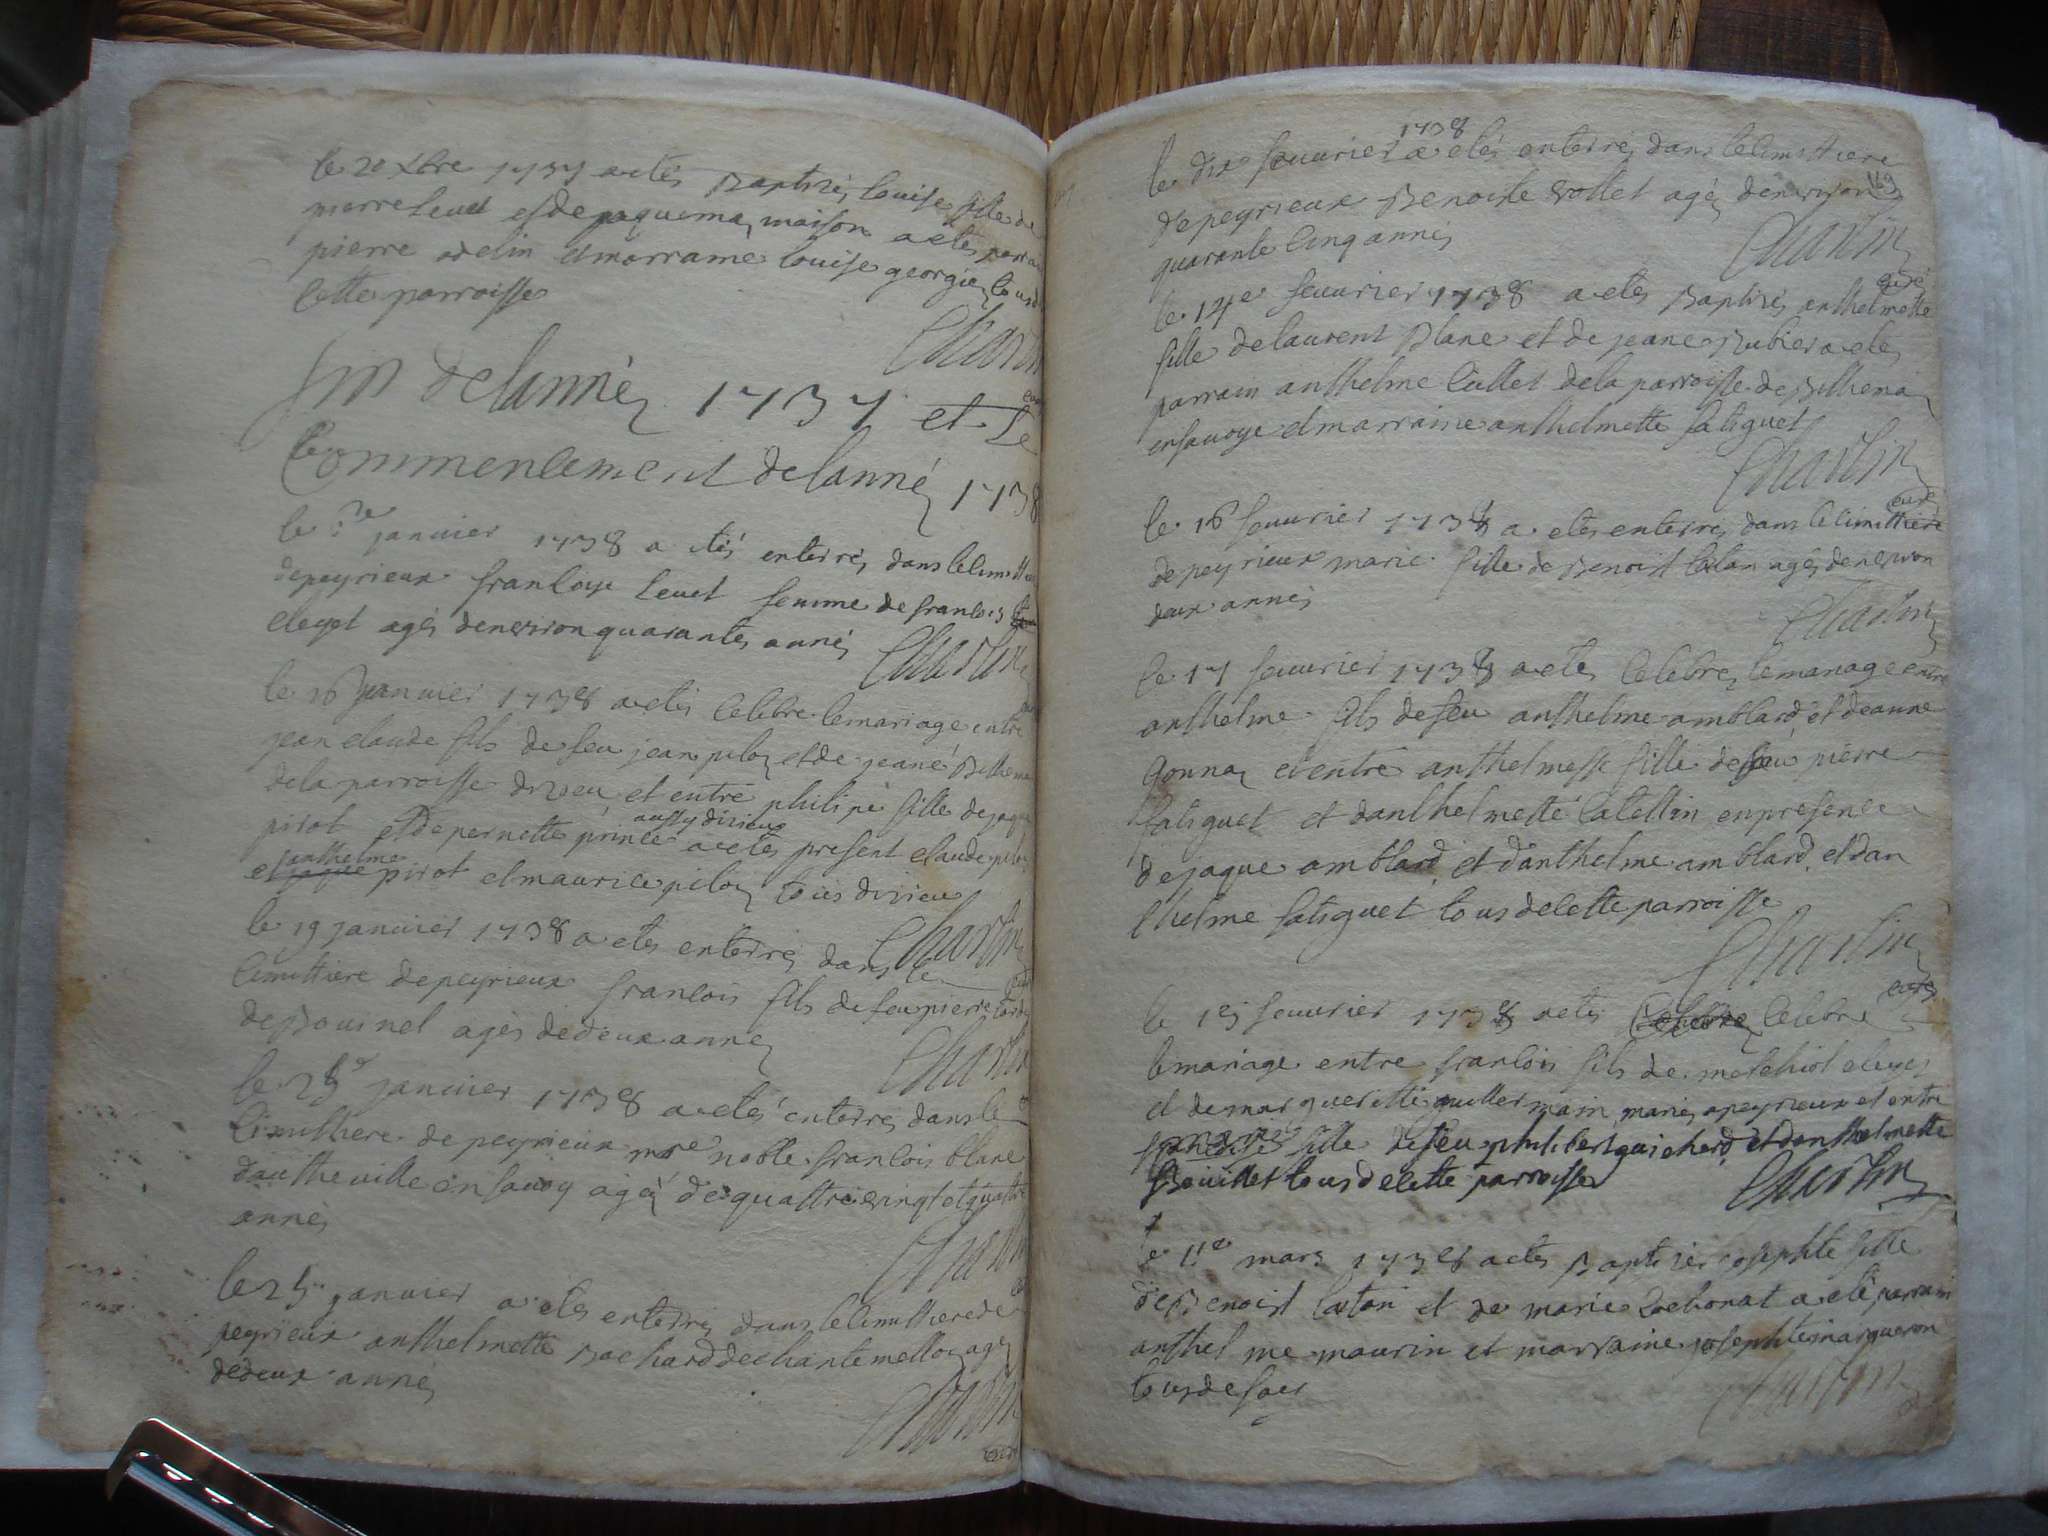 le 20 xbre 1737 a etés Baptisés louise fille de
pierre levet et de
pierre et marraine louise georgie tous
cette parroisse
Charlin
fin de lanneé 1737 et Le
Commencement de lanné 1738
le janvier 1738 a etés enterrés dans le cimittiere
de peyrieux francoise levet femme de francois
cleyet agés denviron quarantes annés Charlin
le 16 janvier 1738 a etés celebre le mariage entre
jean claude fils de feu jean piloz et de jeane
de la parroisse dizieu et entre philipe fille de jaque
aussy dizieux
pirot et de pernette prince a etés present claude piloz
anthelme
et jaque pirot et maurice piloz tous dizieu
Charlin
le 19 janvier 1738 a etés enterrés dans le
cimittiere de peyrieux francois fils de feu pierre
de Bouinel agés de deux annés
Charlin
le janvier 1738 a etés enterrés dans le
cimittiere de peyrieux mre noble francois blanc
en savoy agés de quattre vingt et quattre
annés
Charlin
le janvier a etes enterrés dans le cimittiere de
peyrieux anthelmette Bochard de chantemelloz agés
de deux annés
Charlin
curé
1738
le dix feuvrier a etés enterrés dans le cimittiere
69
de peyrieux Benoite vollet agés denviron
quarante cinq annés
Charlin
curé
le 14e feuvrier 1738 a etés Baptisés anthelmette
fille de laurent Blanc et de jeane Rubier a etés
parrain anthelme Cullet de la parroisse de
en savoye et marraine anthelmette fatiguet
Charlin
curé
le 16 feuvrier 1738 a etés enterrés dans le cimittiere
de peyrieux marie fille de Benoist catan agés denviron
deux annés
Charlin
le 17 feuvrier 1738 a etés Celebrés le mariage entre
anthelme fils de feu anthelme amblard et deanne
Gonnaz et entre anthelmette fille de feu pierre
fatiguet et danthelmette Catellin en presence
de jaque amblard et danthelme amblard et dan
thelme fatiguet tous de cette parroisse
Charlin
curé
le 19 feuvrier 1738 a etés Celebre Celebre
le mariage entre francois fils de melchiot cleyet
et de marguerite guillermain mariés a peyrieux et entre
francoise fille de feu philibert guichard et danthelmette
Bouillet tous de cette parroisse
Charlin
le 11e mars 1738 a etés Baptisés josephte fille
de Benoist catan et de marie Rochonat a eté parrain
anthelme maurin et marraine josephte margueron
tous de
Charlin